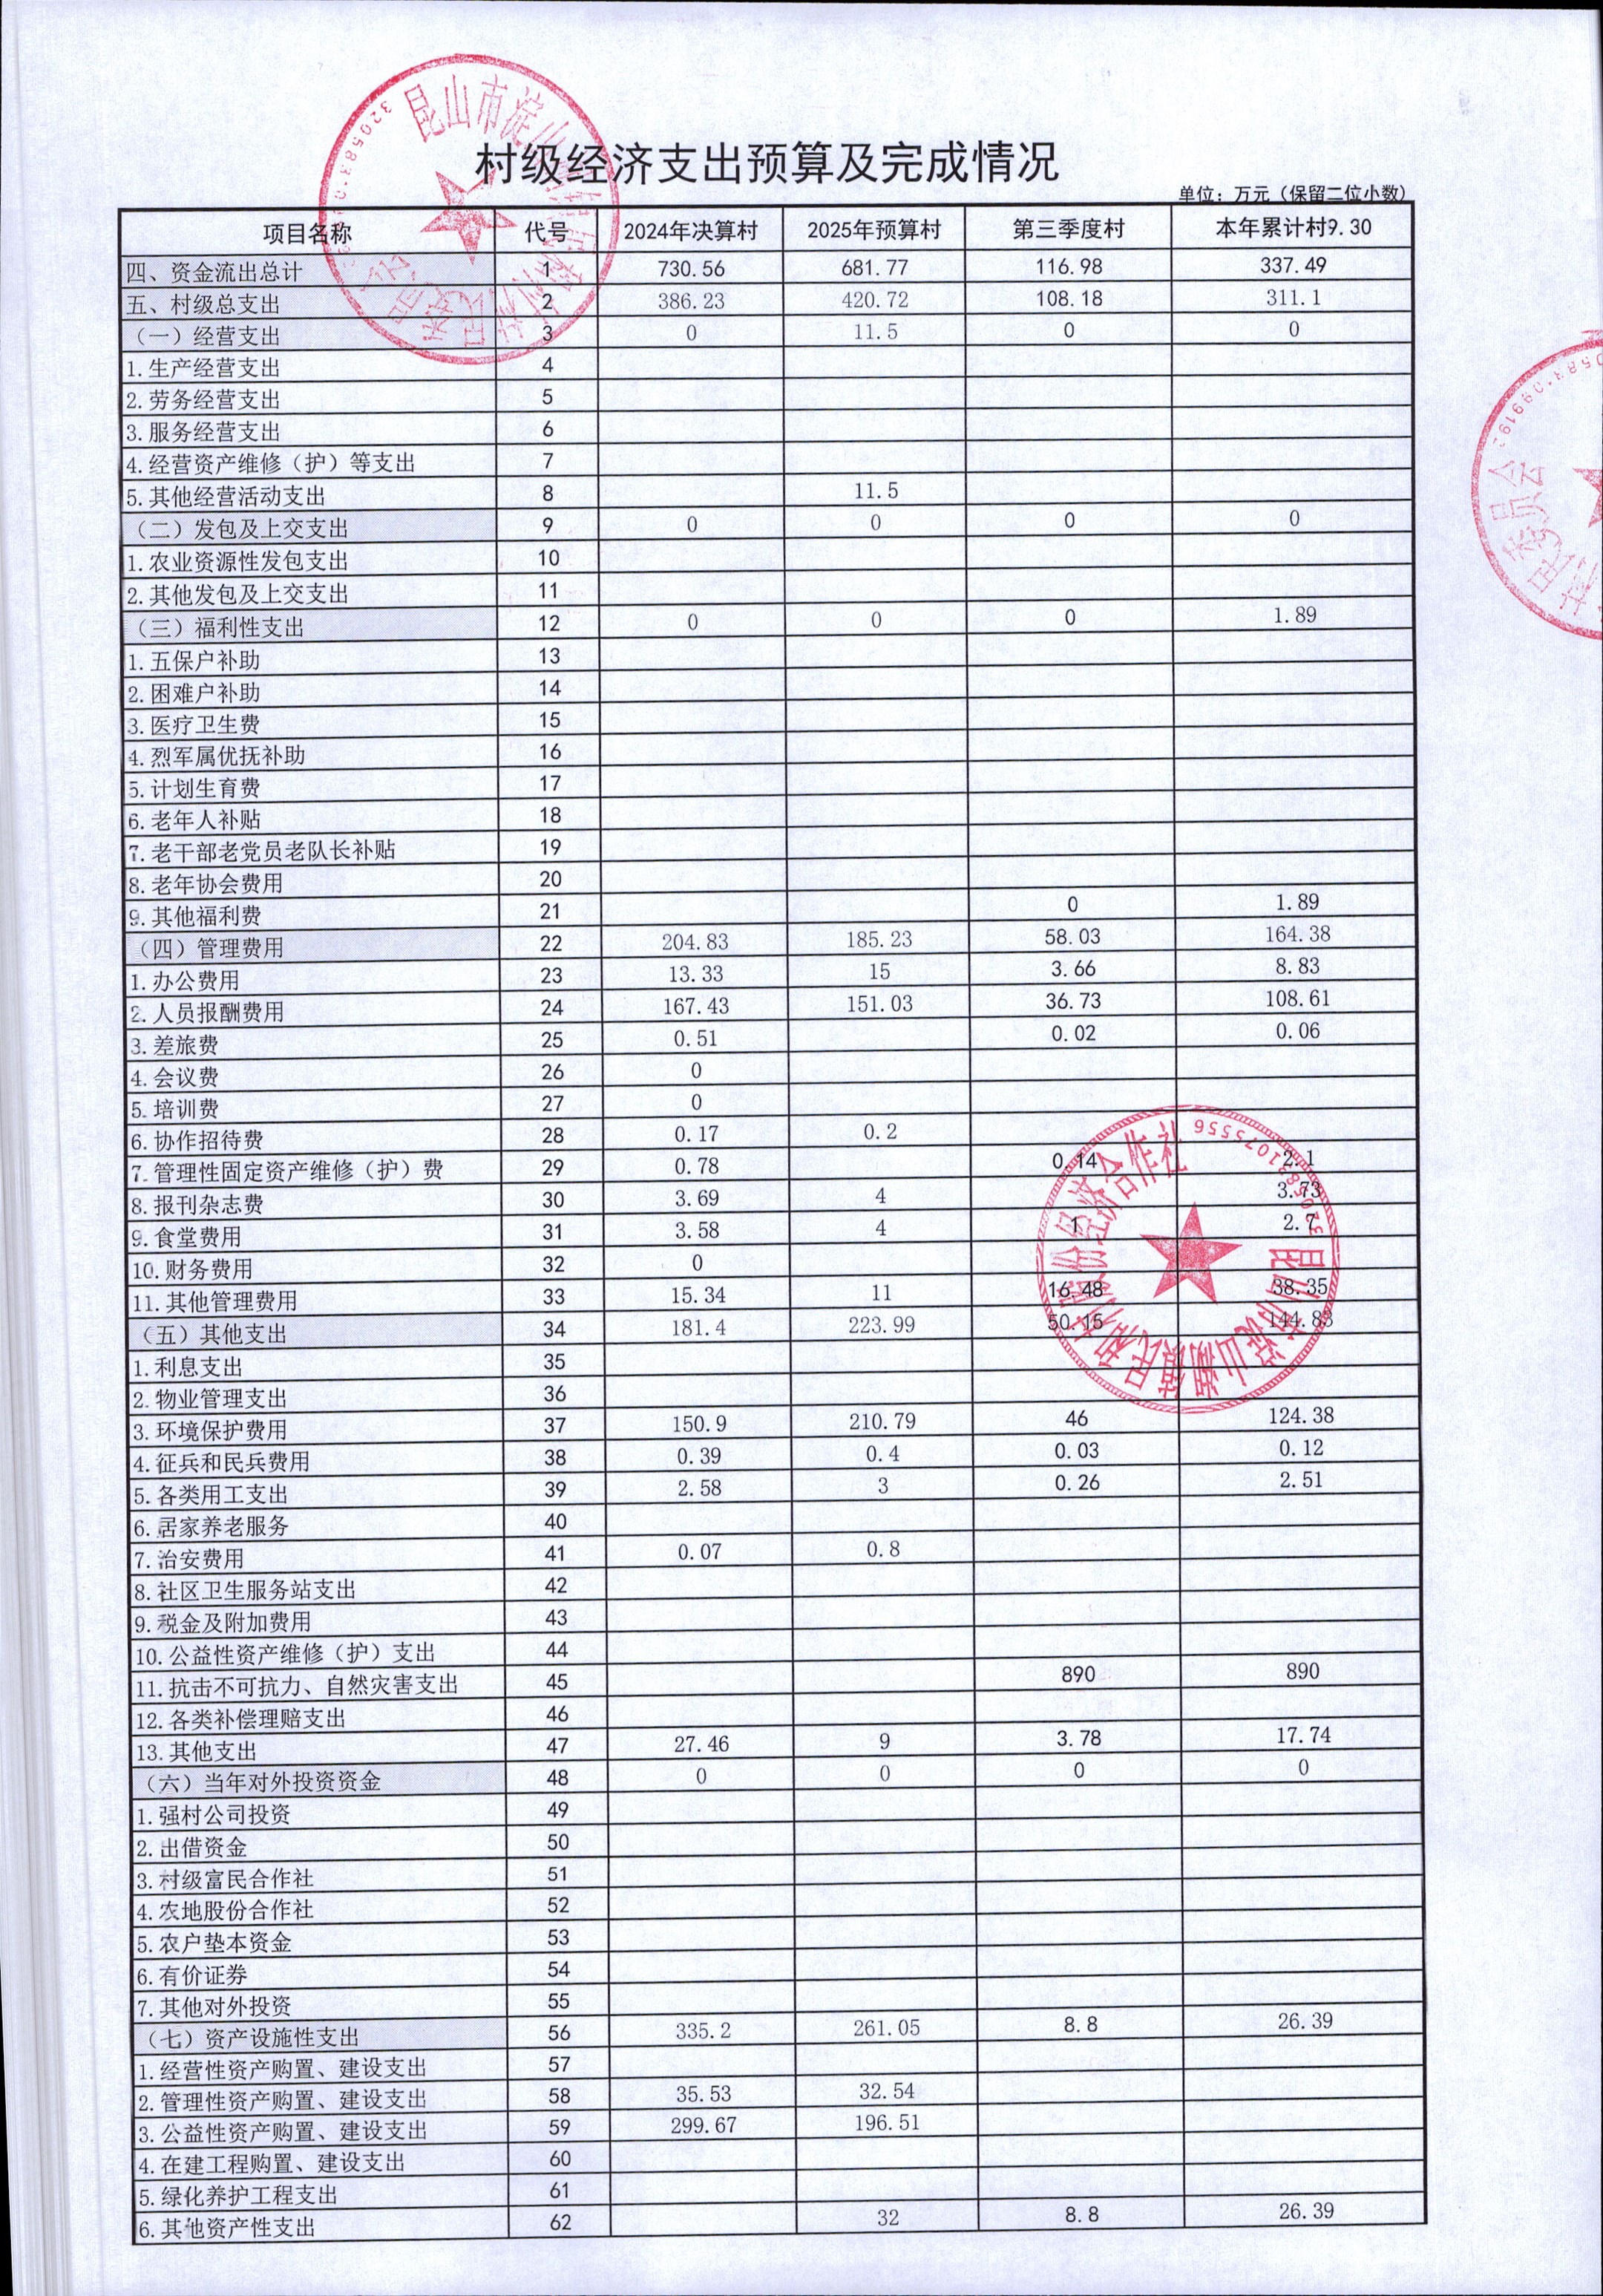 昆山市淀山
村级经济支出预算及完成情况
单位：万元（保留二位小数）
项目名称 代号 2024年决算村 2025年预算村 第三季度村 本年累计村9.30
四、资金流出总计 1 730.56 681.77 116.98 337.49
五、村级总支出 2 386.23 420.72 108.18 311.1
（一）经营支出 3 0 11.5 0 0
1.生产经营支出 4
2.劳务经营支出 5
3.服务经营支出 6
4.经营资产维修（护）等支出 7
5.其他经营活动支出 8 11.5
（二）发包及上交支出 9 0 0 0 0
1.农业资源性发包支出 10
2.其他发包及上交支出 11
（三）福利性支出 12 0 0 0 1.89
1.五保户补助 13
2.困难户补助 14
3.医疗卫生费 15
4.烈军属优抚补助 16
5.计划生育费 17
6.老年人补贴 18
7.老干部老党员老队长补贴 19
8.老年协会费用 20
9.其他福利费 21 0 1.89
（四）管理费用 22 204.83 185.23 58.03 164.38
1.办公费用 23 13.33 15 3.66 8.83
2.人员报酬费用 24 167.43 151.03 36.73 108.61
3.差旅费 25 0.51 0.02 0.06
4.会议费 26 0
5.培训费 27 0
6.协作招待费 28 0.17 0.2
7.管理性固定资产维修（护）费 29 0.78 0.14 2.1
8.报刊杂志费 30 3.69 4 3.73
9.食堂费用 31 3.58 4 1 2.7
10.财务费用 32 0
11.其他管理费用 33 15.34 11 16.48 38.35
（五）其他支出 34 181.4 223.99 50.15 144.83
1.利息支出 35
2.物业管理支出 36
3.环境保护费用 37 150.9 210.79 46 124.38
4.征兵和民兵费用 38 0.39 0.4 0.03 0.12
5.各类用工支出 39 2.58 3 0.26 2.51
6.居家养老服务 40
7.治安费用 41 0.07 0.8
8.社区卫生服务站支出 42
9.税金及附加费用 43
10.公益性资产维修（护）支出 44
11.抗击不可抗力、自然灾害支出 45 890 890
12.各类补偿理赔支出 46
13.其他支出 47 27.46 9 3.78 17.74
（六）当年对外投资资金 48 0 0 0 0
1.强村公司投资 49
2.出借资金 50
3.村级富民合作社 51
4.农地股份合作社 52
5.农户垫本资金 53
6.有价证券 54
7.其他对外投资 55
（七）资产设施性支出 56 335.2 261.05 8.8 26.39
1.经营性资产购置、建设支出 57
2.管理性资产购置、建设支出 58 35.53 32.54
3.公益性资产购置、建设支出 59 299.67 196.51
4.在建工程购置、建设支出 60
5.绿化养护工程支出 61
6.其他资产性支出 62 32 8.8 26.39
昆山市淀山湖镇民和村股份经济合作社